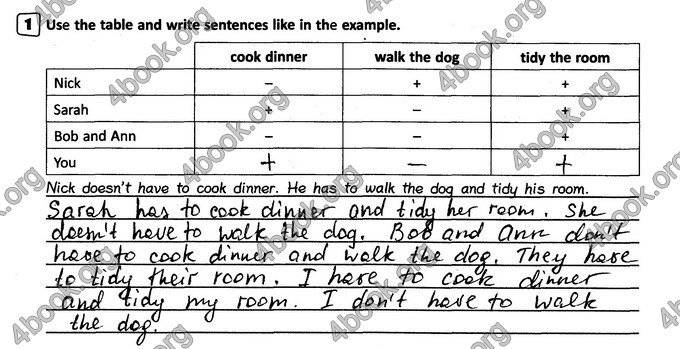 1 Use the table and write sentences like in the example.
cook dinner walk the dog tidy the room
Nick – + +
Sarah + – +
Bob and Ann – – +
You + – +
Nick doesn't have to cook dinner. He has to walk the dog and tidy his room.
Sarah has to cook dinner and tidy her room. She
doesn't have to walk the dog. Bob and Ann don't
have to cook dinner and walk the dog. They have
to tidy their room. I have to cook dinner
and tidy my room. I don't have to walk
the dog.
4book.org
4book.org
4book.org
4book.org
4book.org
4book.org
4book.org
4book.org
4book.org